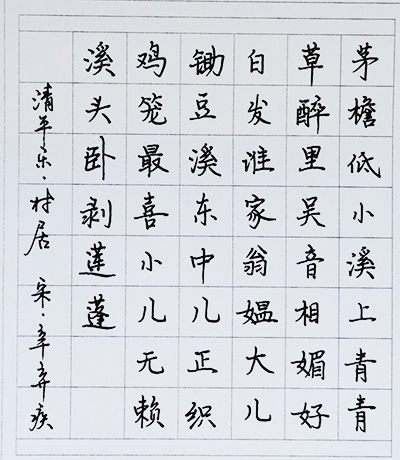 茅檐低小溪上青青
草醉里吴音相媚好
白发谁家翁媪大儿
锄豆溪东中儿正织
鸡笼最喜小儿无赖
溪头卧剥莲蓬
清平乐·村居 宋·辛弃疾